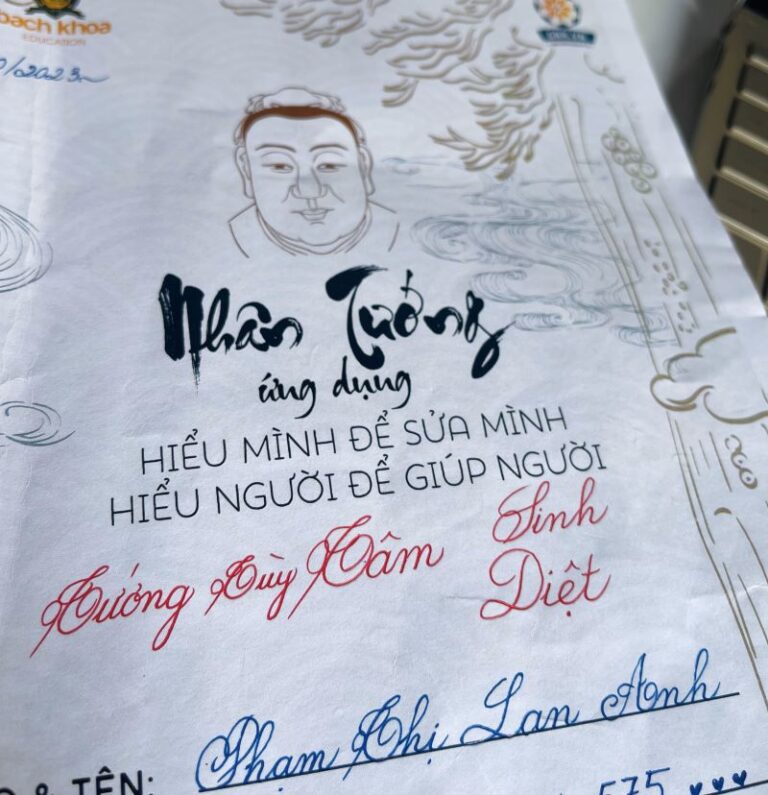 bach khoa
EDUCATION
/2023
Nhân Tướng
ứng dụng
HIỂU MÌNH ĐỂ SỬA MÌNH
HIỂU NGƯỜI ĐỂ GIÚP NGƯỜI
Tướng Tùy Tâm Sinh
Diệt
& TÊN: Phạm Thị Lan Anh
575